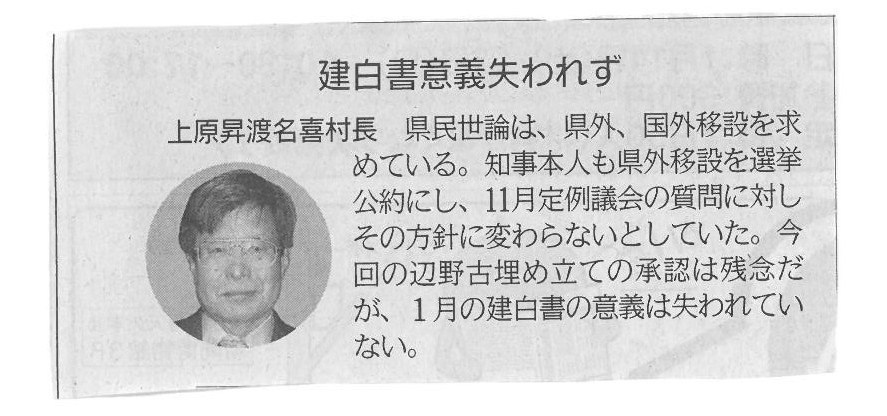 建白書意義失われず
上原昇渡名喜村長　県民世論は、県外、国外移設を求
めている。知事本人も県外移設を選挙
公約にし、11月定例議会の質問に対し
その方針に変わらないとしていた。今
回の辺野古埋め立ての承認は残念だ
が、１月の建白書の意義は失われてい
ない。